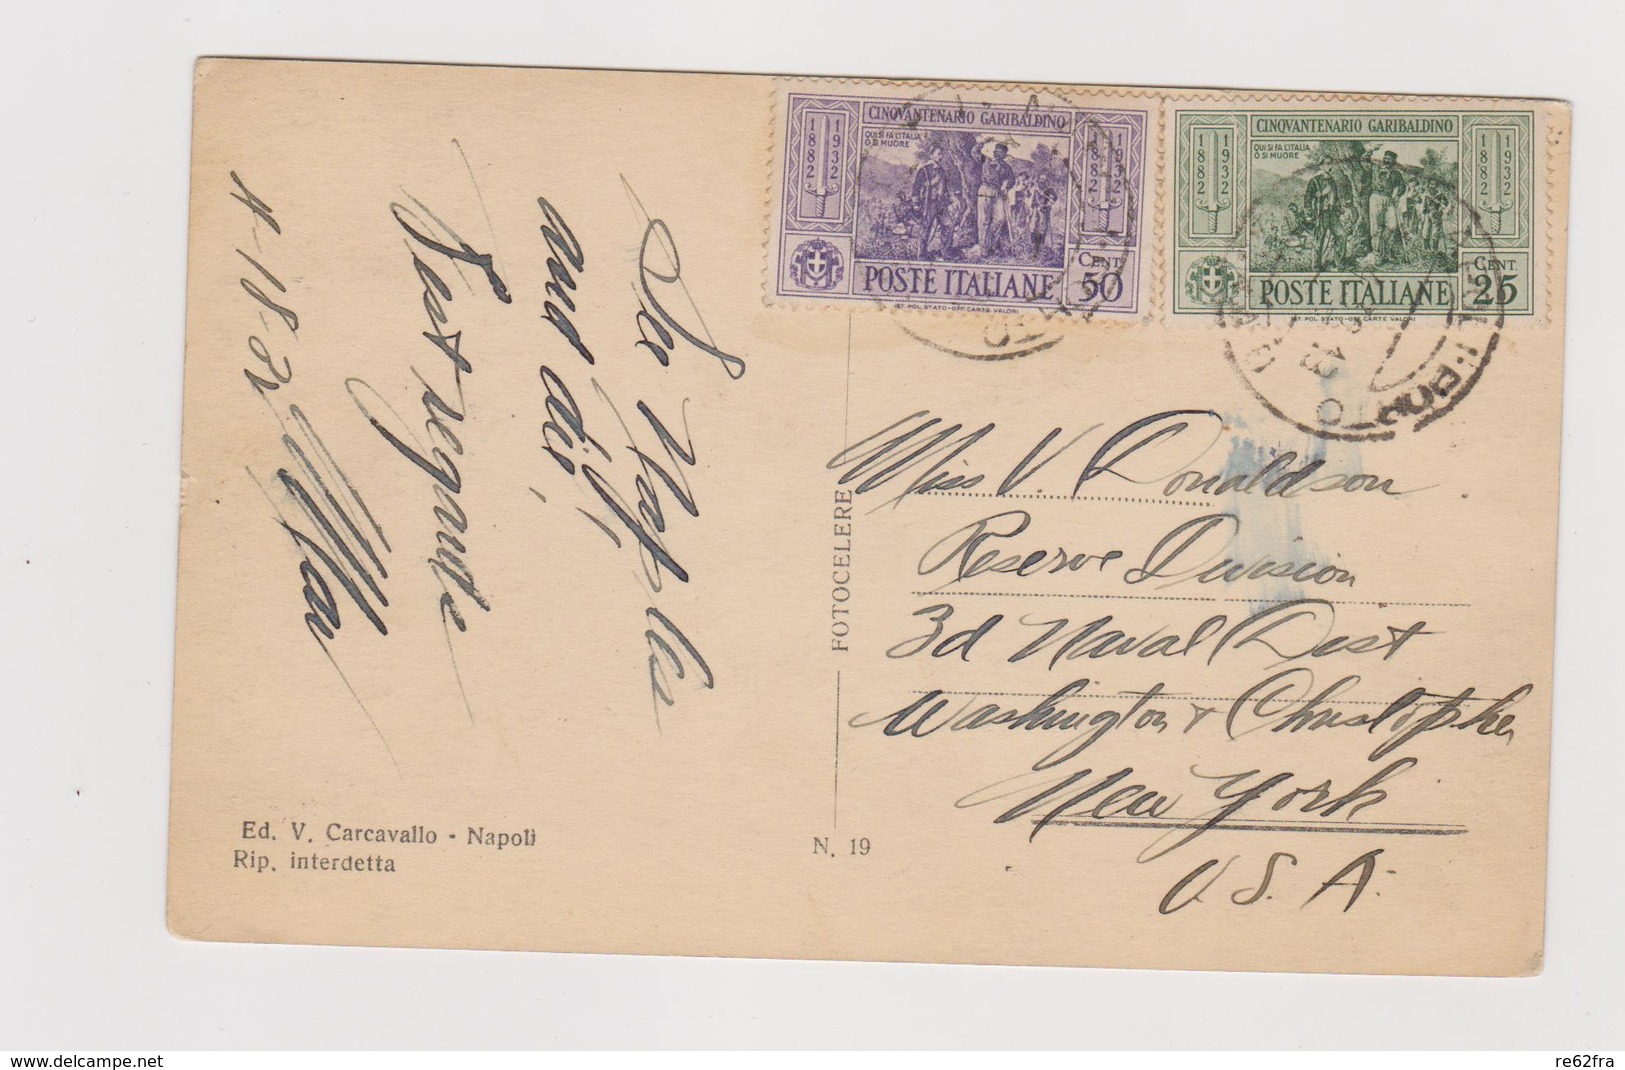 CINQVANTENARIO GARIBALDINO
QUI SI FA L'ITALIA
O SI MUORE
1882
1932
1882
1932
CENT.
50
POSTE ITALIANE
IST. POL. STATO-OFF. CARTE VALORI
CINQVANTENARIO GARIBALDINO
QUI SI FA L'ITALIA
O SI MUORE
1882
1932
1882
1932
CENT.
25
POSTE ITALIANE
IST. POL. STATO-OFF. CARTE VALORI
See Naples
and die,
Post
4-18-32
Miss V. Donaldson
Reserve Division
3d Naval Dist
Washington & Christopher
New York
U.S.A.
FOTOCELERE
N. 19
Ed. V. Carcavallo - Napoli
Rip. interdetta
www.delcampe.net
re62fra